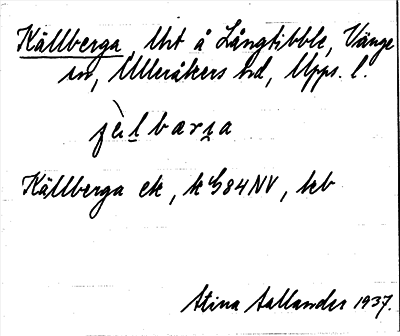 Källberga, lht å Långtibble, Vänge
sn, Ulleråkers hd, Upps. l.
Källberga ek, k 84 NV, kb
Stina Sallander 1937.